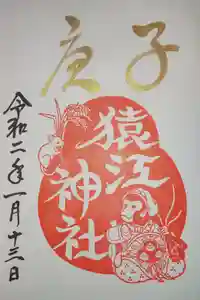 庚子
猿江
神社
令和二年一月十三日